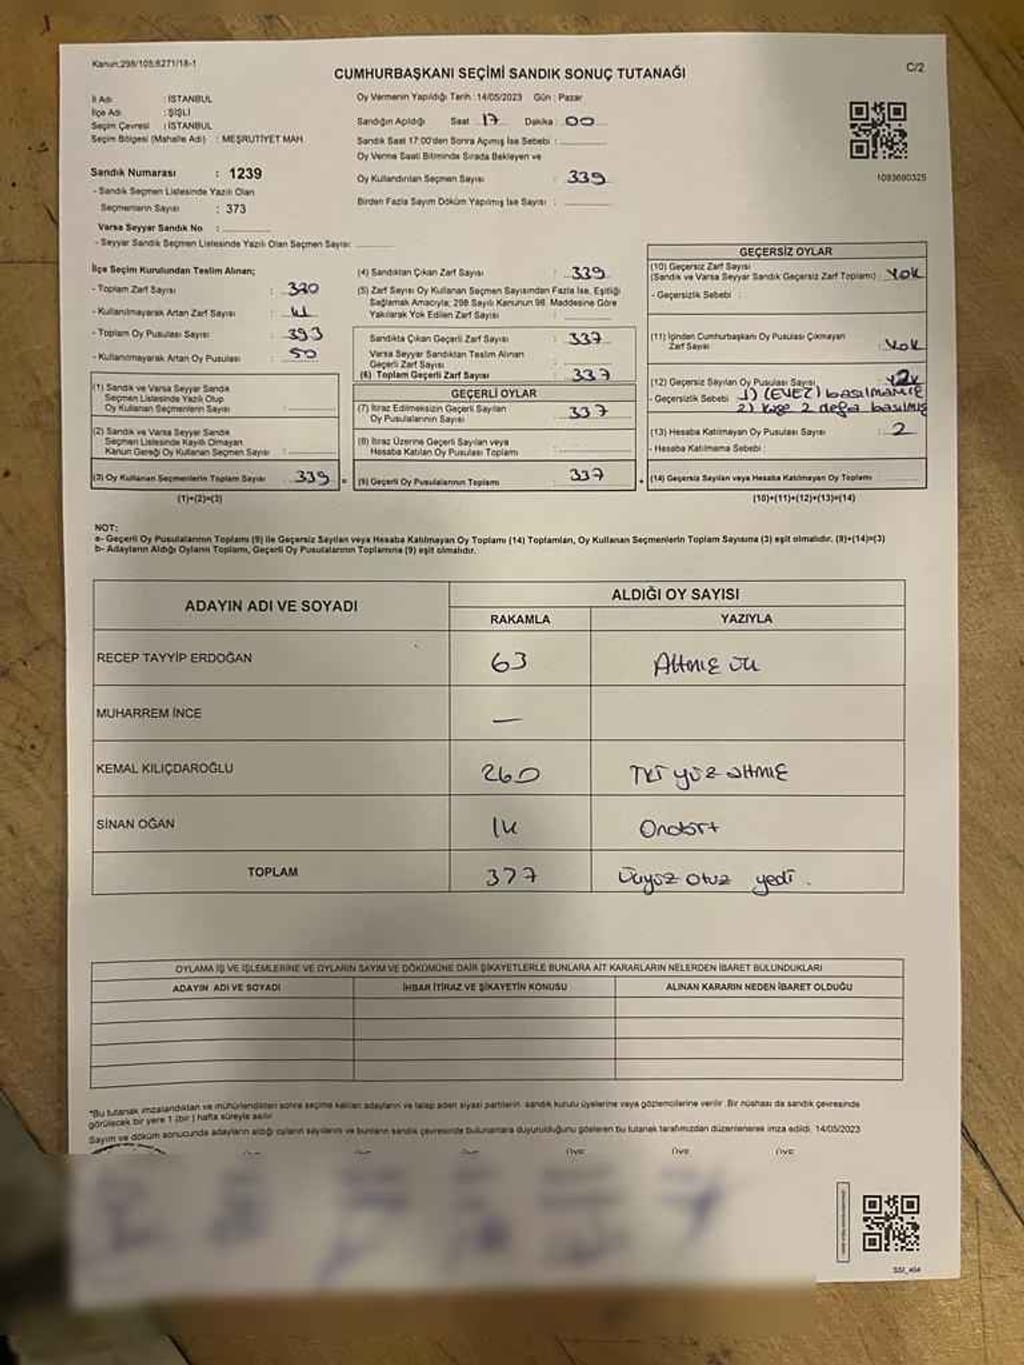 Kanun:298/105;6271/18-1
CUMHURBAŞKANI SEÇİMİ SANDIK SONUÇ TUTANAĞI
C/2
İl Adı : İSTANBUL
İlçe Adı : ŞİŞLİ
Seçim Çevresi : İSTANBUL
Seçim Bölgesi (Mahalle Adı) : MEŞRUTİYET MAH
Sandık Numarası : 1239
- Sandık Seçmen Listesinde Yazılı Olan
Seçmenlerin Sayısı : 373
Varsa Seyyar Sandık No :
- Seyyar Sandık Seçmen Listesinde Yazılı Olan Seçmen Sayısı:
Oy Vermenin Yapıldığı Tarih :14/05/2023 Gün : Pazar
Sandığın Açıldığı Saat 17 Dakika : 00
Sandık Saat 17:00'den Sonra Açımış İse Sebebi :
Oy Verme Saati Bitiminde Sırada Bekleyen ve
Oy Kullandırılan Seçmen Sayısı : 339
Birden Fazla Sayım Döküm Yapılmış İse Sayısı :
1093690325
İlçe Seçim Kurulundan Teslim Alınan;
- Toplam Zarf Sayısı : 380
- Kullanılmayarak Artan Zarf Sayısı : 41
- Toplam Oy Pusulası Sayısı : 393
- Kullanılmayarak Artan Oy Pusulası : 50
(1) Sandık ve Varsa Seyyar Sandık
Seçmen Listesinde Yazılı Olup
Oy Kullanan Seçmenlerin Sayısı :
(2) Sandık ve Varsa Seyyar Sandık
Seçmen Listesinde Kayıtlı Olmayan
Kanun Gereği Oy Kullanan Seçmen Sayısı :
(3) Oy Kullanan Seçmenlerin Toplam Sayısı : 339 =
(1)+(2)=(3)
(4) Sandıktan Çıkan Zarf Sayısı : 339
(5) Zarf Sayısı Oy Kullanan Seçmen Sayısından Fazla İse, Eşitliği
Sağlamak Amacıyla; 298 Sayılı Kanunun 98. Maddesine Göre
Yakılarak Yok Edilen Zarf Sayısı :
Sandıkta Çıkan Geçerli Zarf Sayısı : 337
Varsa Seyyar Sandıktan Teslim Alınan
Geçerli Zarf Sayısı :
(6) Toplam Geçerli Zarf Sayısı : 337
GEÇERLİ OYLAR
(7) İtiraz Edilmeksizin Geçerli Sayılan
Oy Pusulalarının Sayısı : 337
(8) İtiraz Üzerine Geçerli Sayılan veya
Hesaba Katılan Oy Pusulası Toplamı :
(9) Geçerli Oy Pusulalarının Toplamı : 337 +
GEÇERSİZ OYLAR
(10) Geçersiz Zarf Sayısı
(Sandık ve Varsa Seyyar Sandık Geçersiz Zarf Toplamı) : YOK
- Geçersizlik Sebebi :
(11) İçinden Cumhurbaşkanı Oy Pusulası Çıkmayan
Zarf Sayısı : YOK
(12) Geçersiz Sayılan Oy Pusulası Sayısı
- Geçersizlik Sebebi 1) (EVET) basılmamış
2) kaşe 2 defa basılmış
(13) Hesaba Katılmayan Oy Pusulası Sayısı : 2
- Hesaba Katılmama Sebebi :
(14) Geçersiz Sayılan veya Hesaba Katılmayan Oy Toplamı
(10)+(11)+(12)+(13)=(14)
NOT:
a- Geçerli Oy Pusulalarının Toplamı (9) ile Geçersiz Sayılan veya Hesaba Katılmayan Oy Toplamı (14) Toplamları, Oy Kullanan Seçmenlerin Toplam Sayısına (3) eşit olmalıdır. (9)+(14)=(3)
b- Adayların Aldığı Oyların Toplamı, Geçerli Oy Pusulalarının Toplamına (9) eşit olmalıdır.
ADAYIN ADI VE SOYADI ALDIĞI OY SAYISI
RAKAMLA YAZIYLA
RECEP TAYYİP ERDOĞAN 63 Altmış üç
MUHARREM İNCE —
KEMAL KILIÇDAROĞLU 260 İki yüz altmış
SİNAN OĞAN 14 Ondört
TOPLAM 377 Üçyüz otuz yedi .
OYLAMA İŞ VE İŞLEMLERİNE VE OYLARIN SAYIM VE DÖKÜMÜNE DAİR ŞİKAYETLERLE BUNLARA AİT KARARLARIN NELERDEN İBARET BULUNDUKLARI
ADAYIN ADI VE SOYADI İHBAR İTİRAZ VE ŞİKAYETİN KONUSU ALINAN KARARIN NEDEN İBARET OLDUĞU
*Bu tutanak imzalandıktan ve mühürlendikten sonra seçime katılan adayların ve talep eden siyasi partilerin, sandık kurulu üyelerine veya gözlemcilerine verilir. Bir nüshası da sandık çevresinde
görülecek bir yere 1 (bir) hafta süreyle asılır.
Sayım ve döküm sonucunda adayların aldığı oyların sayılarını ve bunların sandık çevresinde bulunanlara duyurulduğunu gösteren bu tutanak tarafımızdan düzenlenerek imza edildi. 14/05/2023
ÜYE ÜYE ÜYE